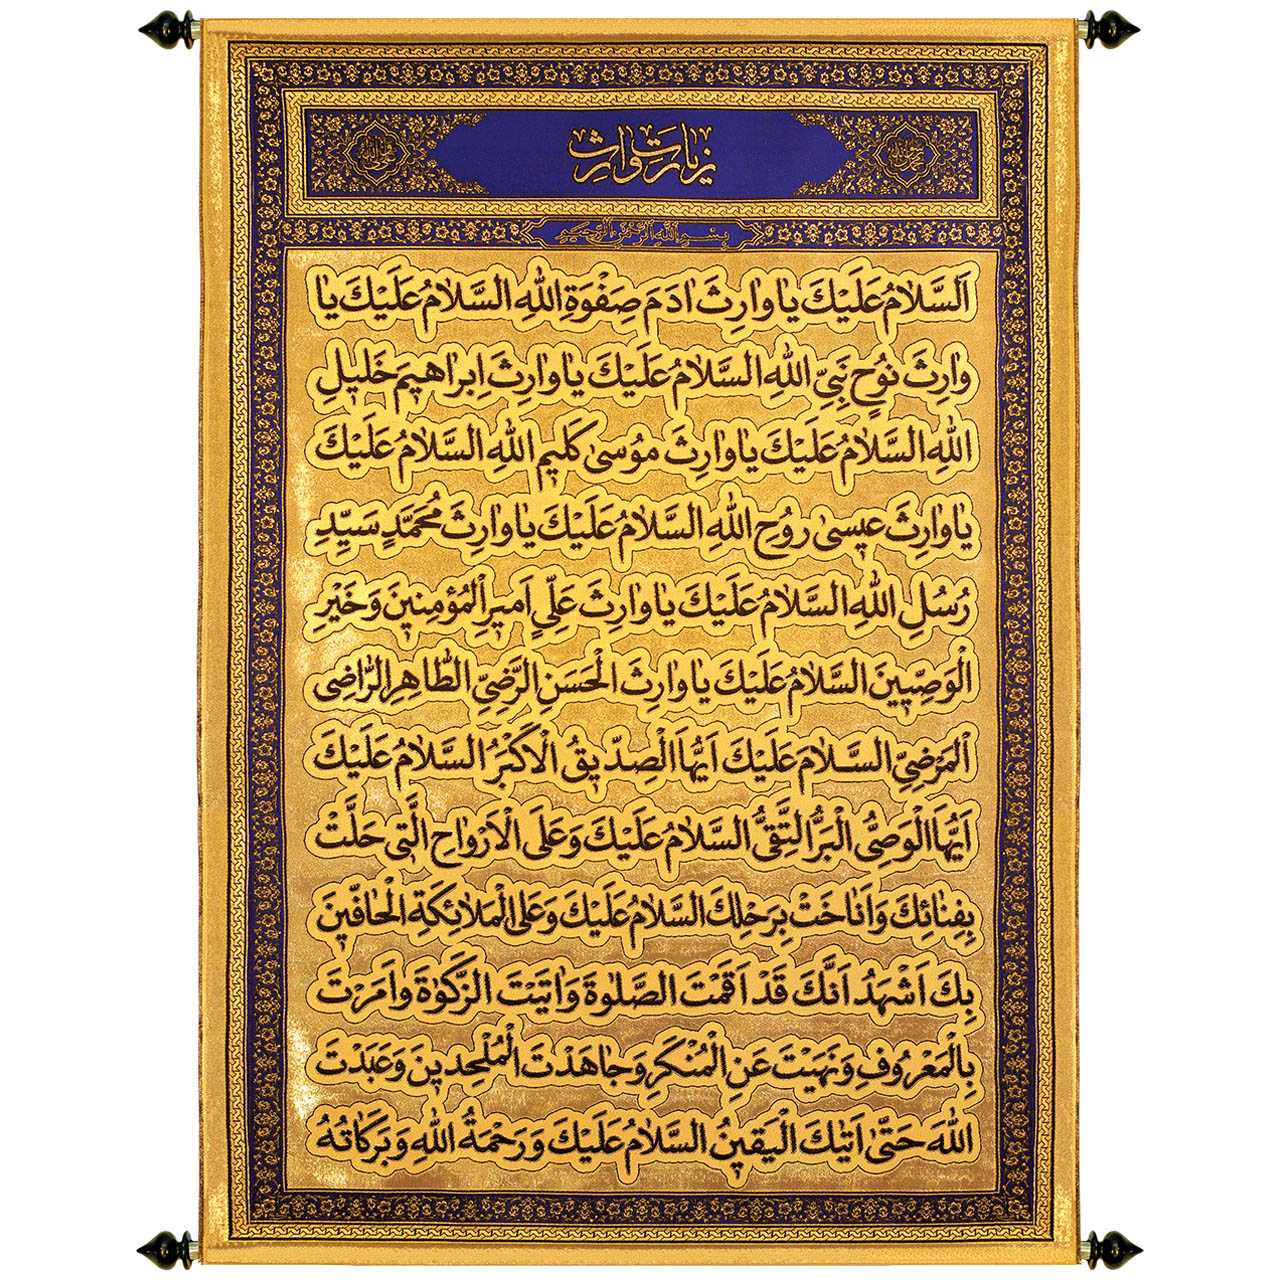 زیارت وارث
بسم الله الرحمن الرحیم
اَلسَّلامُ عَلَيْكَ يا وارِثَ ادَمَ صِفْوَةِ اللهِ السَّلامُ عَلَيْكَ يا
وارِثَ نُوحٍ نَبِيِّ اللهِ السَّلامُ عَلَيْكَ يا وارِثَ اِبراهيمَ خَليلِ
اللهِ السَّلامُ عَلَيْكَ يا وارِثَ مُوسىٰ كَليمِ اللهِ السَّلامُ عَلَيْكَ
يا وارِثَ عيسىٰ رُوحِ اللهِ السَّلامُ عَلَيْكَ يا وارِثَ مُحَمَّدٍ سَيِّدِ
رُسُلِ اللهِ السَّلامُ عَلَيْكَ يا وارِثَ عَلِيٍّ اَميرِ الْمُؤْمِنينَ وَ خَيْرِ
الْوَصِيّينَ السَّلامُ عَلَيْكَ يا وارِثَ الْحَسَنِ الرَّضِيِّ الطّاهِرِ الرّاضِى
الْمَرْضِيِّ السَّلامُ عَلَيْكَ اَيُّهَا الصِدّيقُ الْاَكْبَرُ السَّلامُ عَلَيْكَ
اَيُّهَا الْوَصِىُّ الْبَرُّ التَّقِىُّ السَّلامُ عَلَيْكَ وَ عَلَى الْاَرْواحِ الَّتى حَلَّتْ
بِفِنائِكَ وَ اَناخَتْ بِرَحْلِكَ السَّلامُ عَلَيْكَ وَ عَلَى الْمَلائِكَةِ الْحافّينَ
بِكَ اَشْهَدُ اَنَّكَ قَدْ اَقَمْتَ الصَّلوٰةَ وَ اتَيْتَ الزَّكوٰةَ وَ اَمَرْتَ
بِالْمَعْرُوفِ وَ نَهَيْتَ عَنِ الْمُنْكَرِ وَ جاهَدْتَ الْمُلْحِدينَ وَ عَبَدْتَ
اللهَ حَتّىٰ اَتيٰكَ الْيَقينُ السَّلامُ عَلَيْكَ وَ رَحْمَةُ اللهِ وَ بَرَكاتُهُ